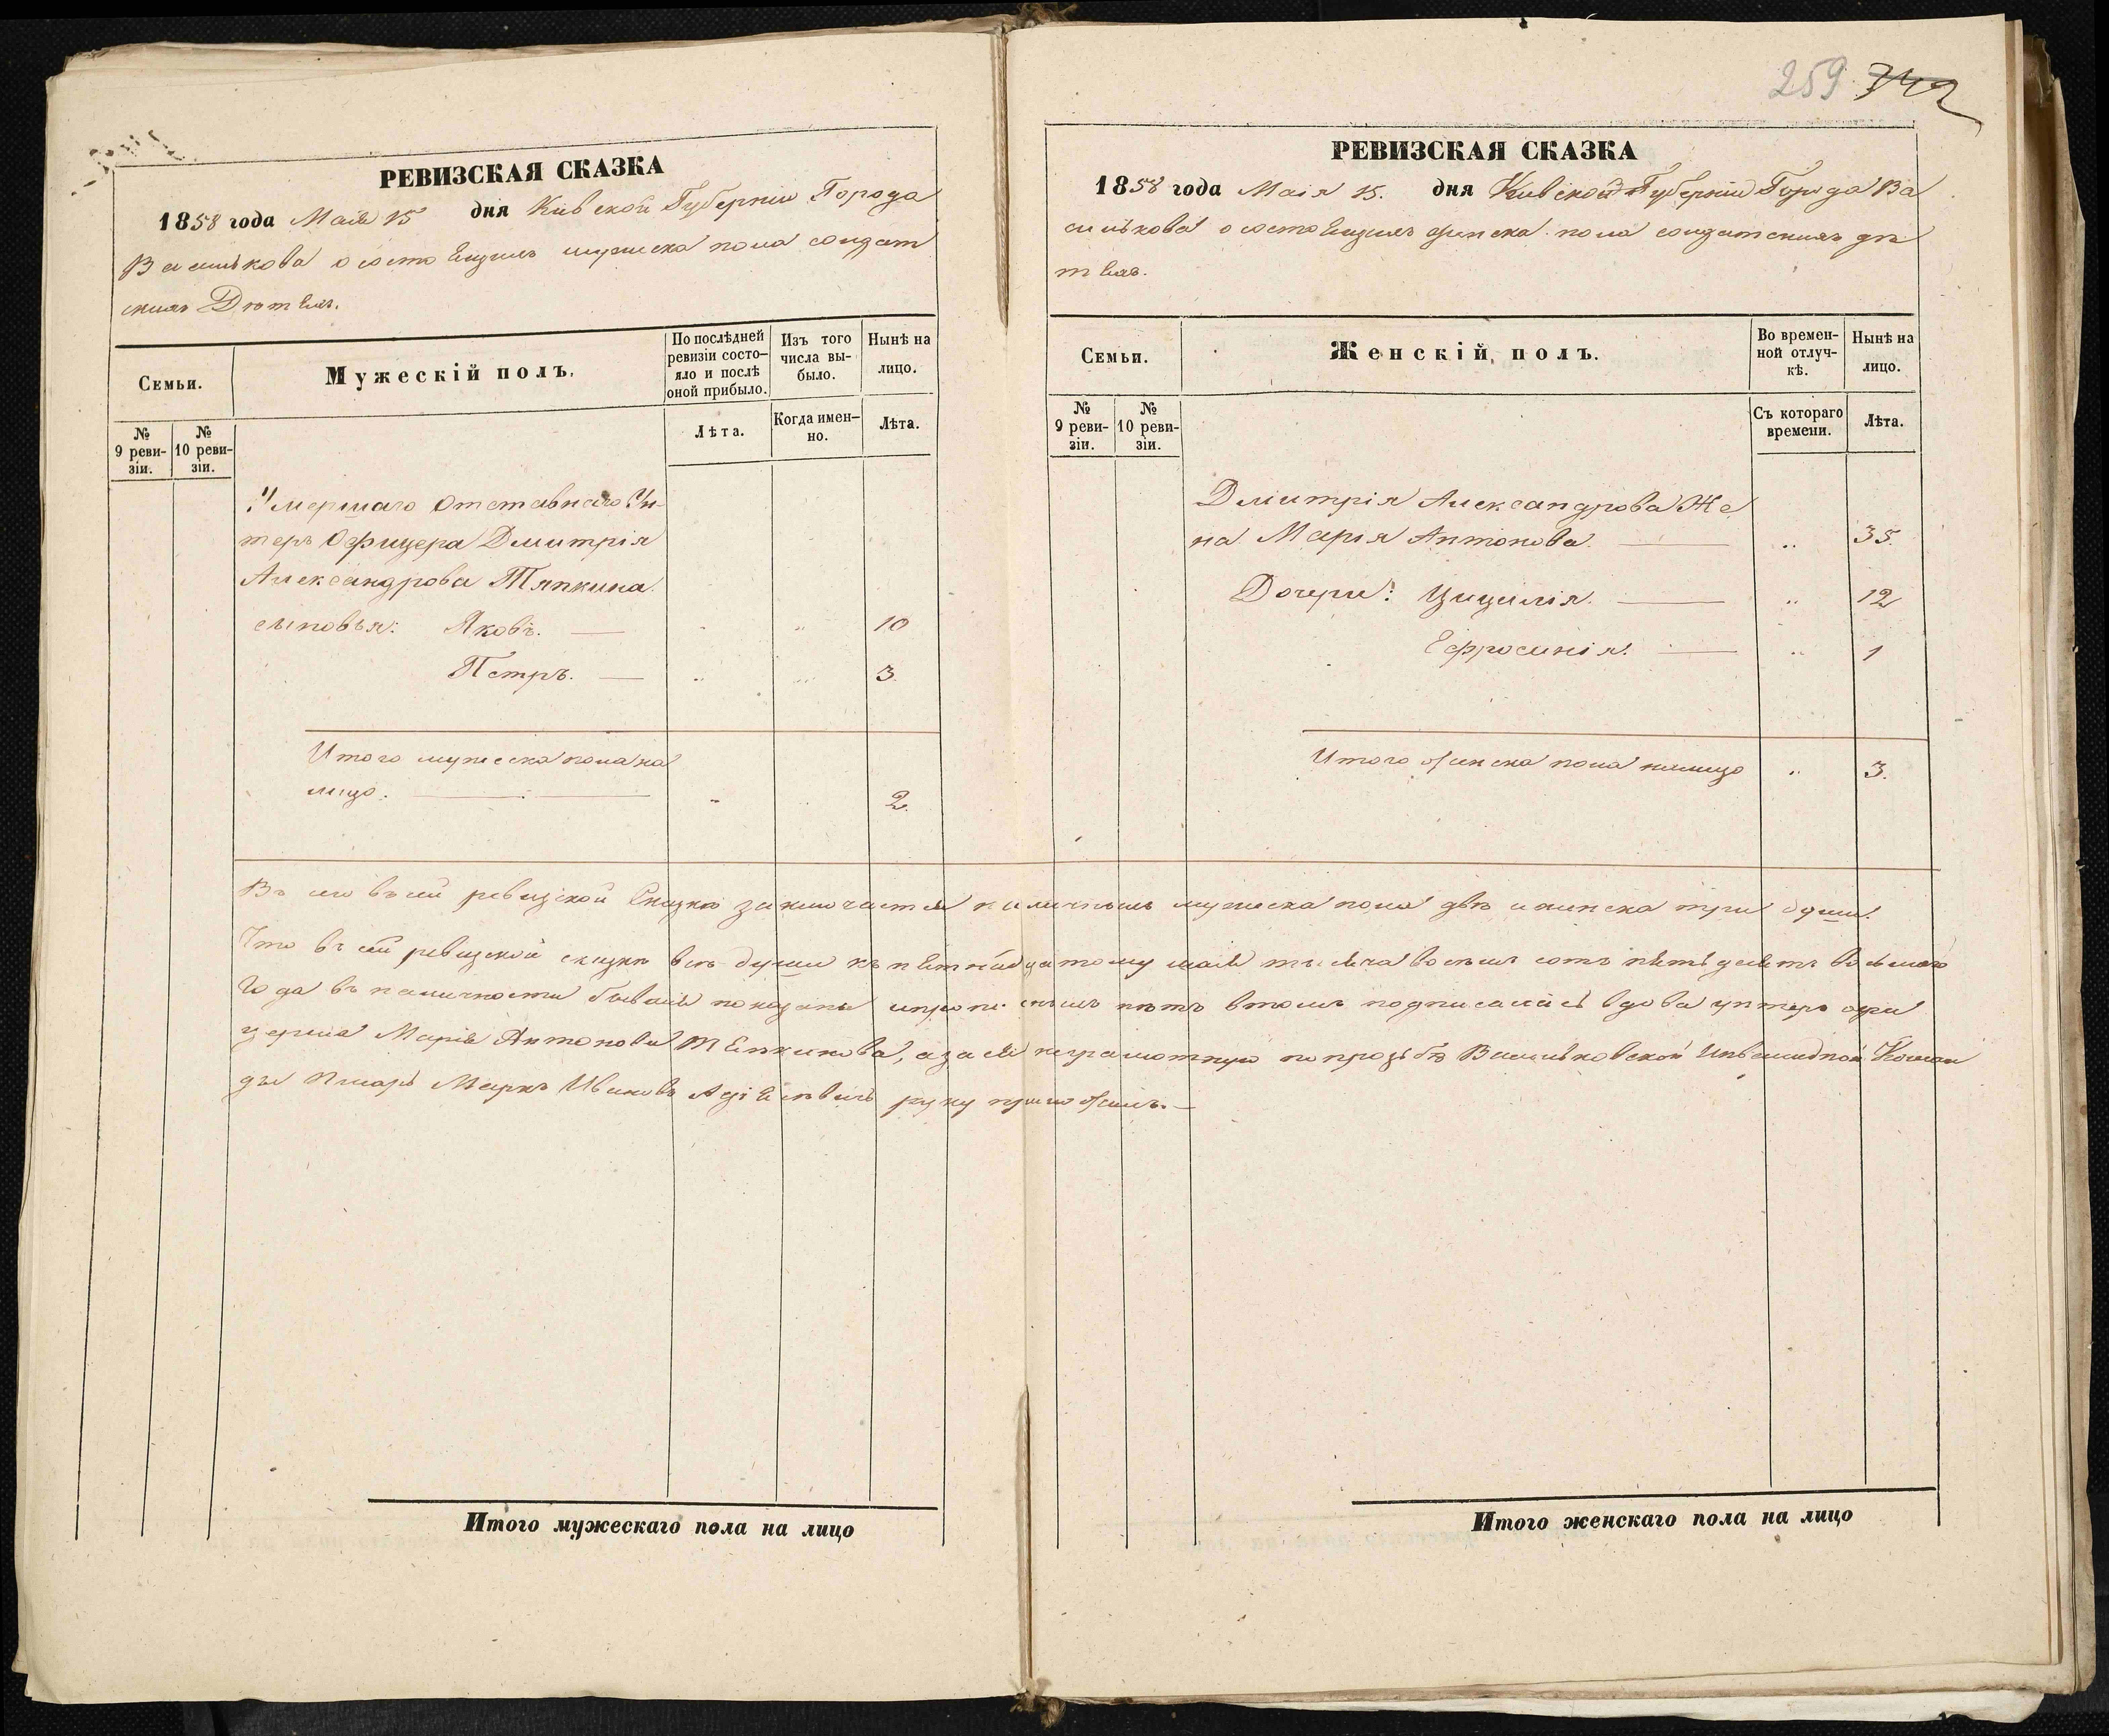 259 742
РЕВИЗСКАЯ СКАЗКА
1858 года Маія 15 дня Кіевской Губерніи Города
Василькова о состоящихъ мужеска пола солдат
скихъ Дѣтяхъ.
Семьи.
Мужескій полъ.
По послѣдней
ревизіи состо-
яло и послѣ
оной прибыло.
Изъ того
числа вы-
было.
Нынѣ на
лицо.
№
9 реви-
зіи.
№
10 реви-
зіи.
Лѣта.
Когда имен-
но.
Лѣта.
Умершаго Отставнаго Ун-
теръ Офицера Дмитрія
Александрова Тяпкина
сыновья: Яковъ. — 10
Петръ. — 3.
Итого мужеска пола на
лицо. — 2.
РЕВИЗСКАЯ СКАЗКА
1858 года Маія 15. дня Кіевской Губерніи Города Ва
силькова о состоящихъ женска пола солдатскихъ дѣ
тяхъ.
Семьи.
Женскій полъ.
Во времен-
ной отлуч-
кѣ.
Нынѣ на
лицо.
№
9 реви-
зіи.
№
10 реви-
зіи.
Съ котораго
времени.
Лѣта.
Дмитрія Александрова Же
на Марія Антонова. — 35.
Дочери: Цицилія. — 12
Ефросинія. — 1
Итого женска пола налицо 3.
Въ сей ревизской Сказкѣ заключается наличныхъ мужеска пола двѣ и женска три души.
Что въ сей ревизской сказкѣ всѣ души къ пятнадцатому маія тысяча восемь сотъ пятьдесятъ восьмого
Года въ наличности бывшія показаны и нѣтъ втомъ подписалась вдова унтеръ офи
церша Марія Антонова Тяпкинова, а за ея неграмотную по прозьбѣ Васильковской Инвалидной Коман
ды Писарь Маркъ Ивановъ руку приложилъ. —
Итого мужескаго пола на лицо
Итого женскаго пола на лицо